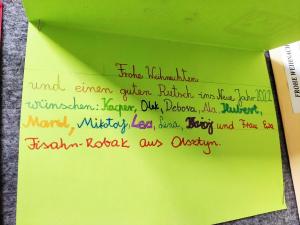 Frohe Weihnachten
und einen guten Rutsch ins Neue Jahr 2022
wünschen: Kacper, Olek, Debora, Ala, Hubert,
Marcel, Mikołaj, Lea, Lena, und Frau Ewa
Fisahn-Robak aus Olsztyn.